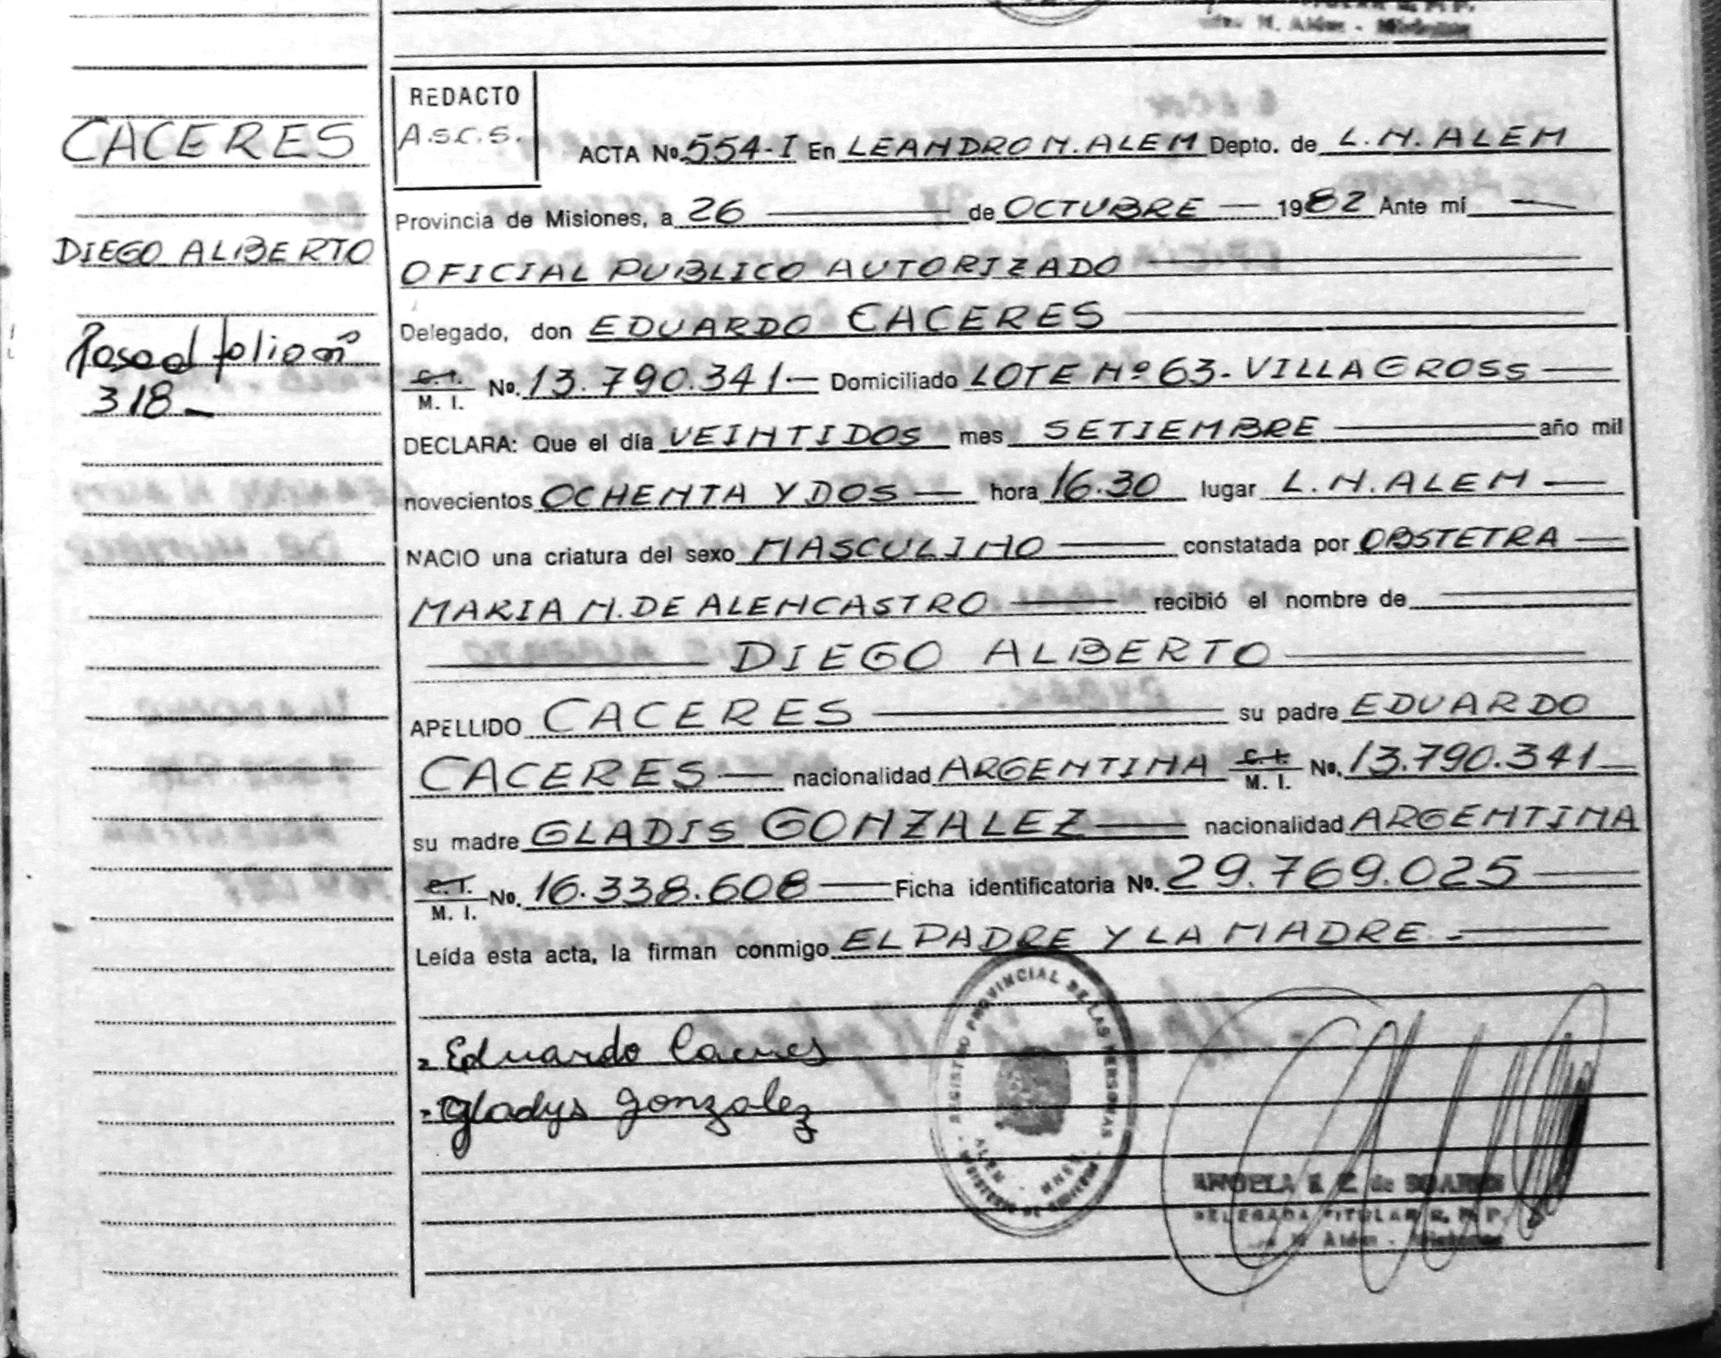 CACERES
DIEGO ALBERTO
Pasa al folio nº
318_
REDACTO
A.S.C.S.
ACTA Nº 554-I En LEANDRO N. ALEM Depto. de L.N. ALEM
Provincia de Misiones, a 26 de OCTUBRE 1982 Ante mí
OFICIAL PUBLICO AUTORIZADO
Delegado, don EDUARDO CACERES
C.I. M. I. No. 13.790.341 Domiciliado LOTE Nº 63 - VILLA GROSS
DECLARA: Que el día VEINTIDOS mes SETIEMBRE año mil
novecientos OCHENTA Y DOS hora 16.30 lugar L.N. ALEM
NACIO una criatura del sexo MASCULINO constatada por OBSTETRA
MARIA N. DE ALENCASTRO recibió el nombre de
DIEGO ALBERTO
APELLIDO CACERES su padre EDUARDO
CACERES nacionalidad ARGENTINA C.I. M. I. No. 13.790.341
su madre GLADIS GONZALEZ nacionalidad ARGENTINA
C.I. M. I. No. 16.338.608 Ficha identificatoria No. 29.769.025
Leída esta acta, la firman conmigo EL PADRE Y LA MADRE.-
Eduardo Caceres
Gladys gonzalez
REGISTRO PROVINCIAL DE LAS PERSONAS
ALEM - MNES.
ANGELA E. Z. de SOARES
DELEGADA TITULAR R. P. P.
N. Alem - Misiones